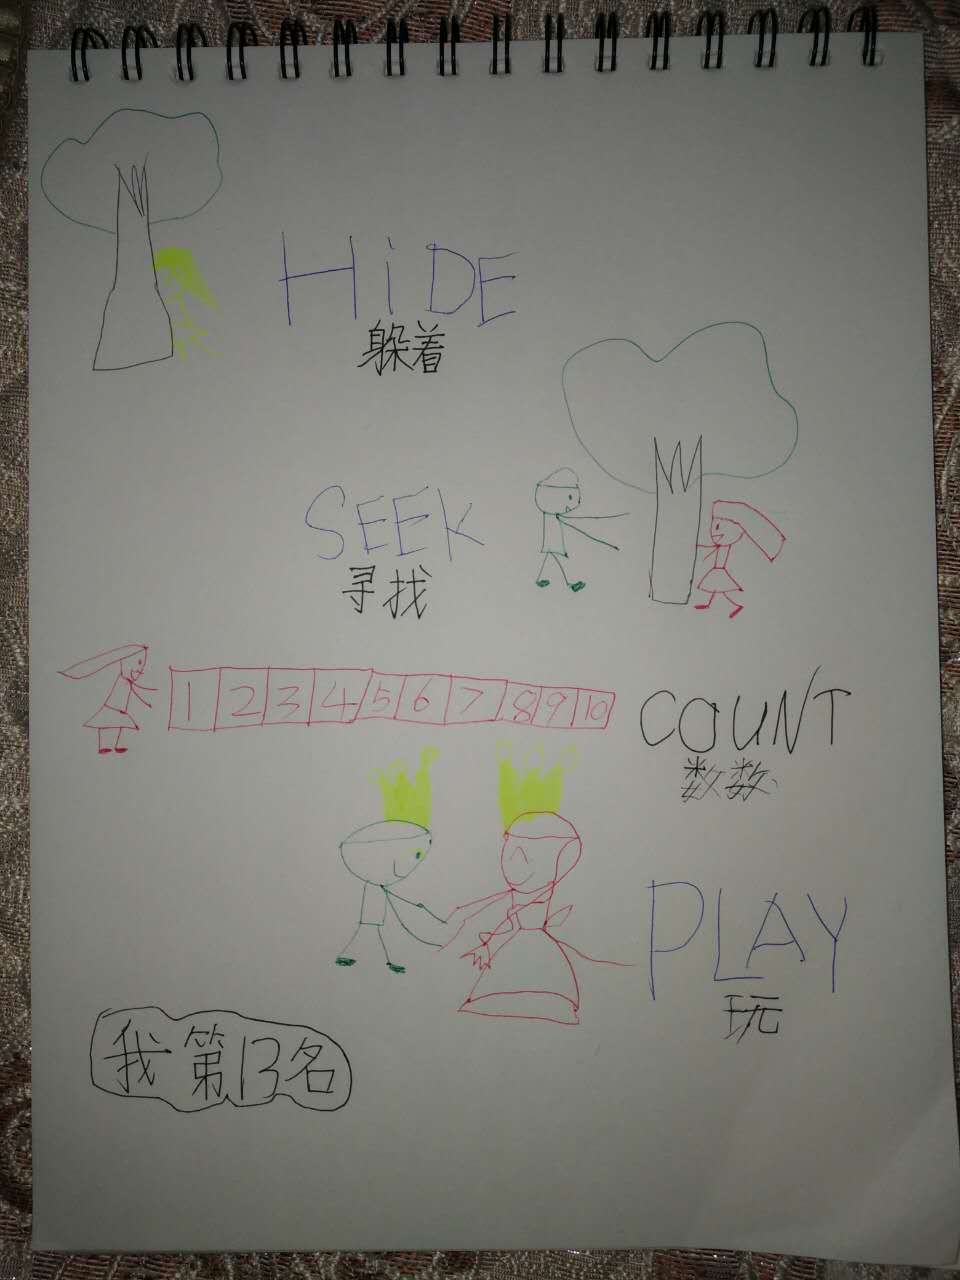 HiDE
躲着
SEEK
寻找
1 2 3 4 5 6 7 8 9 10
COUNT
数数
PLAY
玩
我第13名